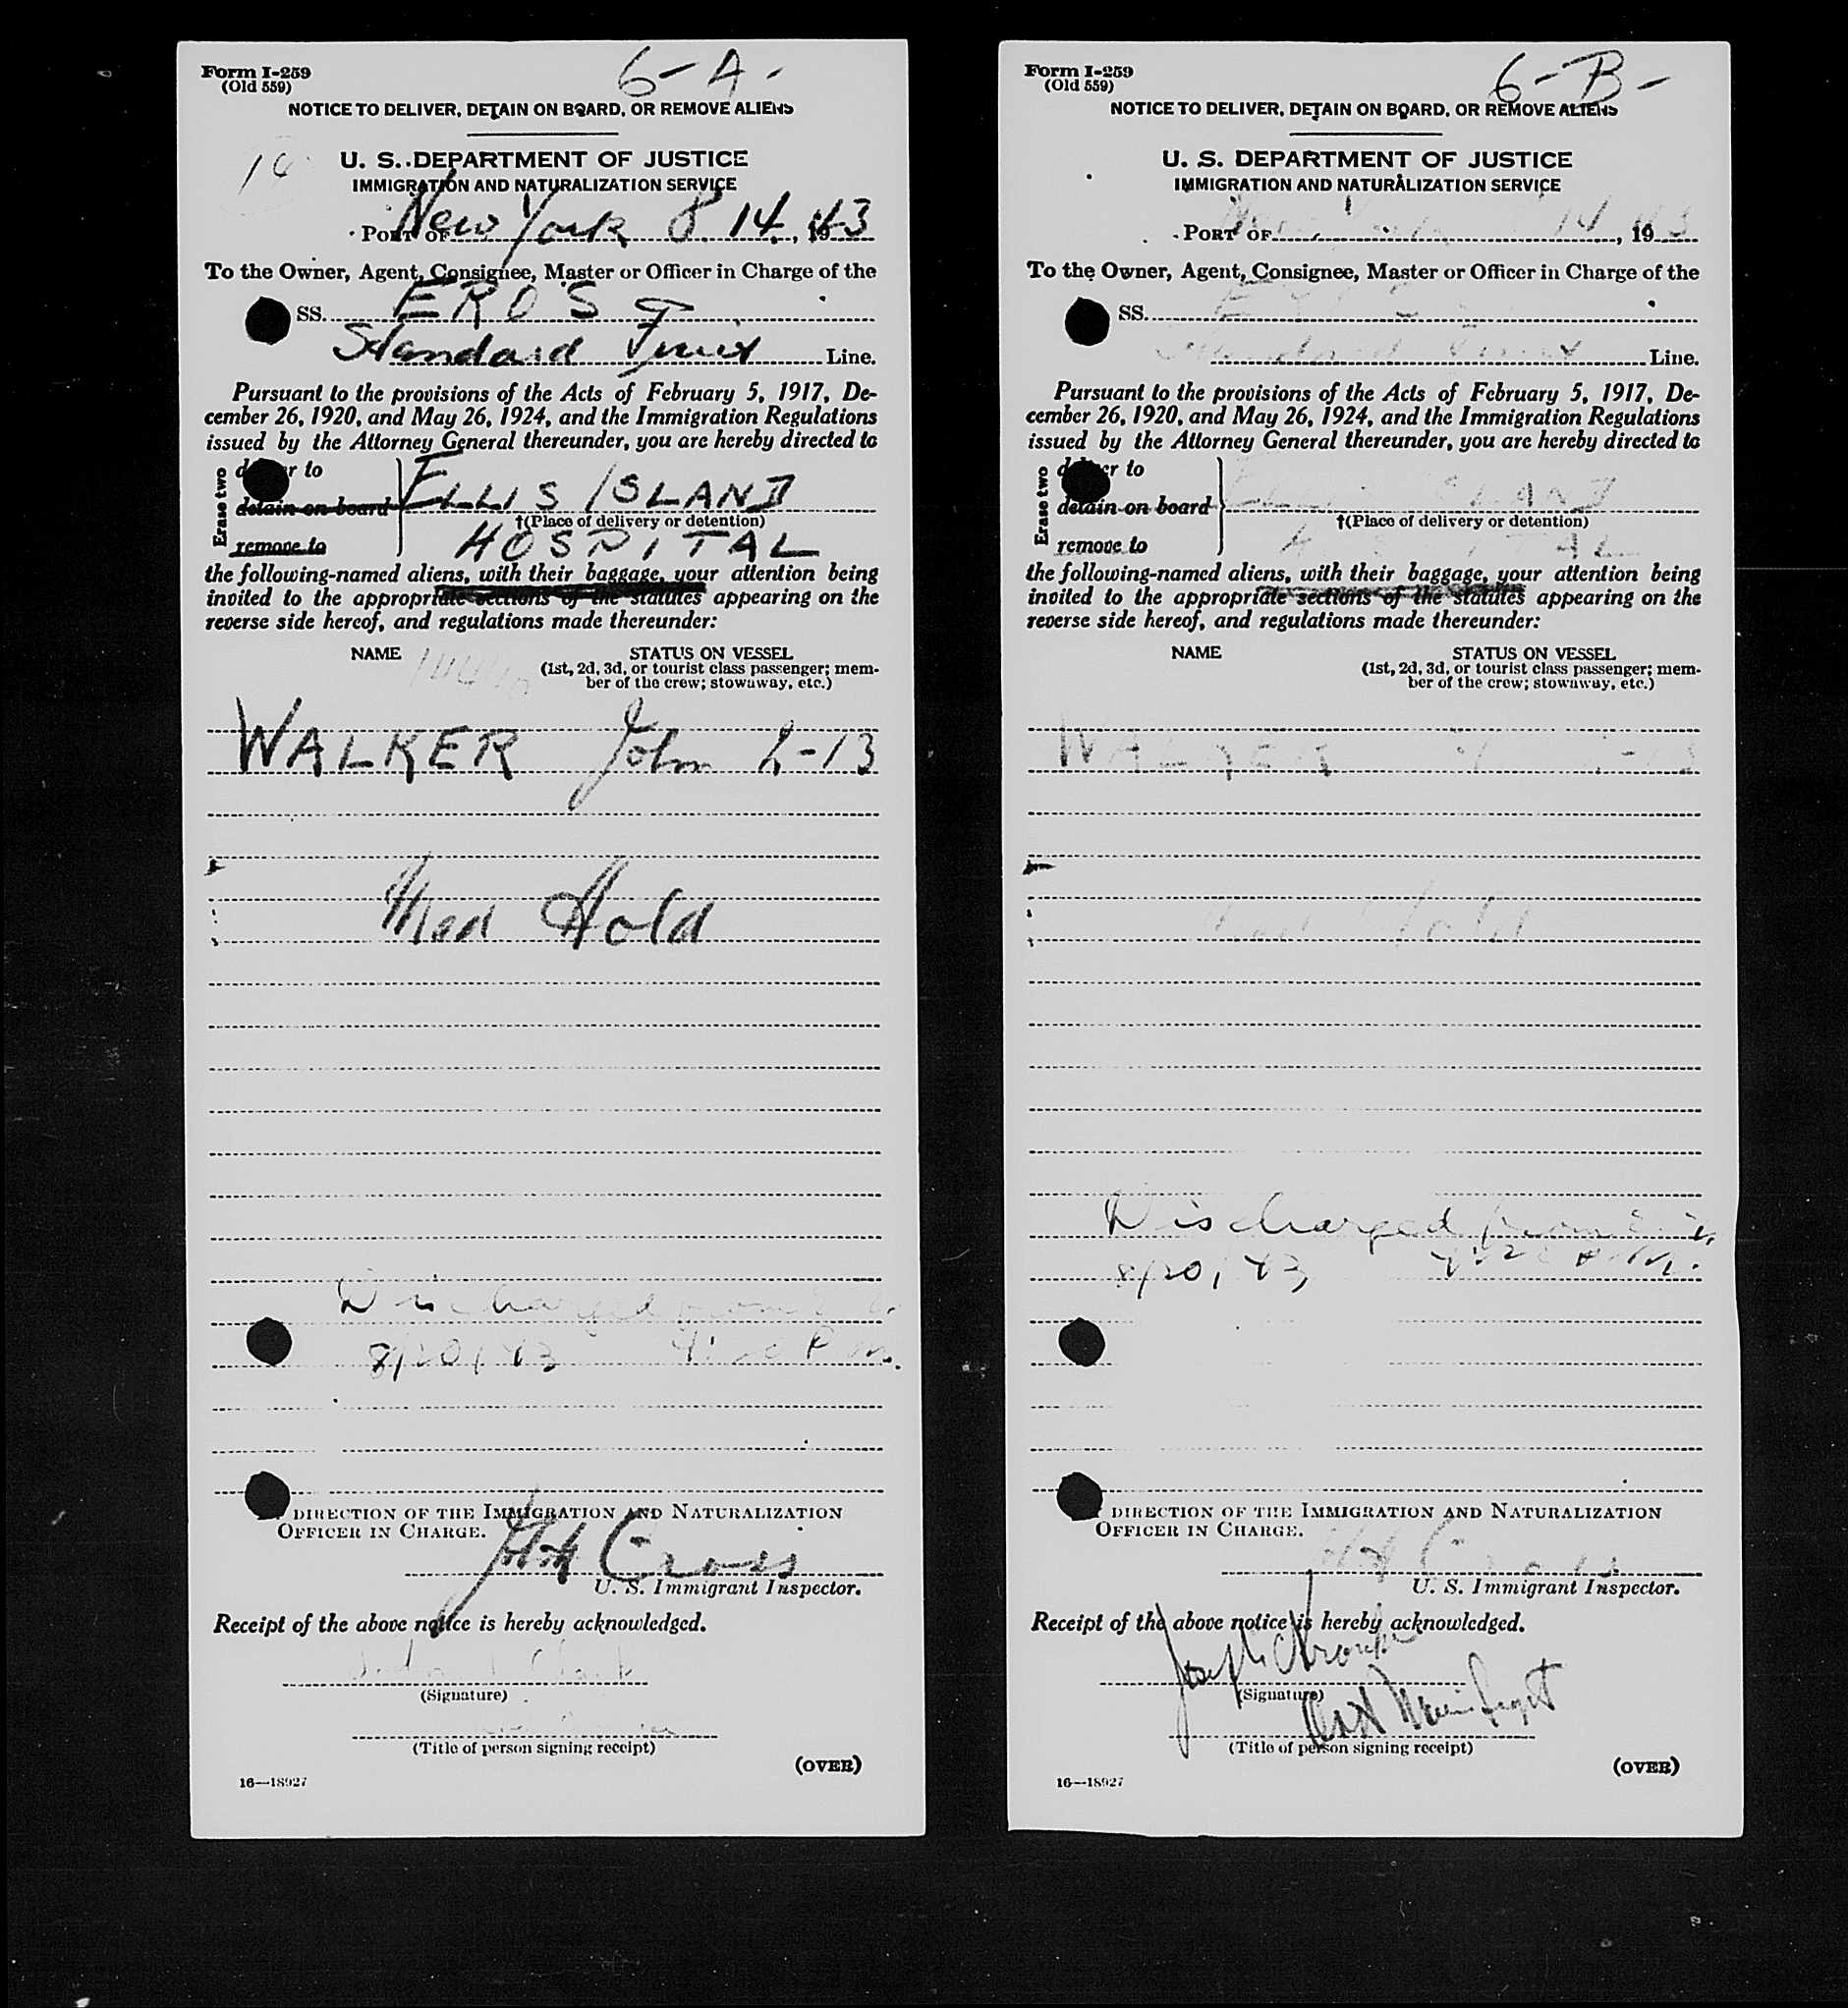 Form I-259
(Old 559)
6-A-
NOTICE TO DELIVER, DETAIN ON BOARD, OR REMOVE ALIENS
U. S. DEPARTMENT OF JUSTICE
IMMIGRATION AND NATURALIZATION SERVICE
PORT OF New York 8 14, 1943
To the Owner, Agent, Consignee, Master or Officer in Charge of the
SS. EROS
Standard Fruit Line.
Pursuant to the provisions of the Acts of February 5, 1917, De-
cember 26, 1920, and May 26, 1924, and the Immigration Regulations
issued by the Attorney General thereunder, you are hereby directed to
Erase two
deliver to
detain on board ELLIS ISLAND
†(Place of delivery or detention)
remove to HOSPITAL
the following-named aliens, with their baggage, your attention being
invited to the appropriate sections of the statutes appearing on the
reverse side hereof, and regulations made thereunder:
NAME STATUS ON VESSEL
(1st, 2d, 3d, or tourist class passenger; mem-
ber of the crew; stowaway, etc.)
WALKER John 2-13
Med Hold
Discharged from
8/20/43 P.M.
DIRECTION OF THE IMMIGRATION AND NATURALIZATION
OFFICER IN CHARGE.
Cross
U. S. Immigrant Inspector.
Receipt of the above notice is hereby acknowledged.
(Signature)
(Title of person signing receipt)
(OVER)
16—18927
Form I-259
(Old 559)
6-B-
NOTICE TO DELIVER, DETAIN ON BOARD, OR REMOVE ALIENS
U. S. DEPARTMENT OF JUSTICE
IMMIGRATION AND NATURALIZATION SERVICE
PORT OF New York 14, 1943
To the Owner, Agent, Consignee, Master or Officer in Charge of the
SS. EROS
Standard Fruit Line.
Pursuant to the provisions of the Acts of February 5, 1917, De-
cember 26, 1920, and May 26, 1924, and the Immigration Regulations
issued by the Attorney General thereunder, you are hereby directed to
Erase two
deliver to
detain on board ELLIS ISLAND
†(Place of delivery or detention)
remove to HOSPITAL
the following-named aliens, with their baggage, your attention being
invited to the appropriate sections of the statutes appearing on the
reverse side hereof, and regulations made thereunder:
NAME STATUS ON VESSEL
(1st, 2d, 3d, or tourist class passenger; mem-
ber of the crew; stowaway, etc.)
WALKER -13
Med Hold
Discharged from
8/20/43
DIRECTION OF THE IMMIGRATION AND NATURALIZATION
OFFICER IN CHARGE.
Cross
U. S. Immigrant Inspector.
Receipt of the above notice is hereby acknowledged.
Joseph
(Signature)
(Title of person signing receipt)
(OVER)
16—18927